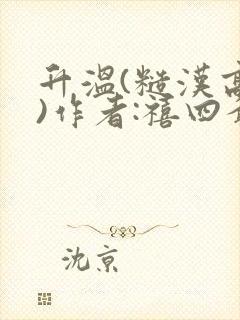 升温(糙漢高
)作者:禧四爺
沈京